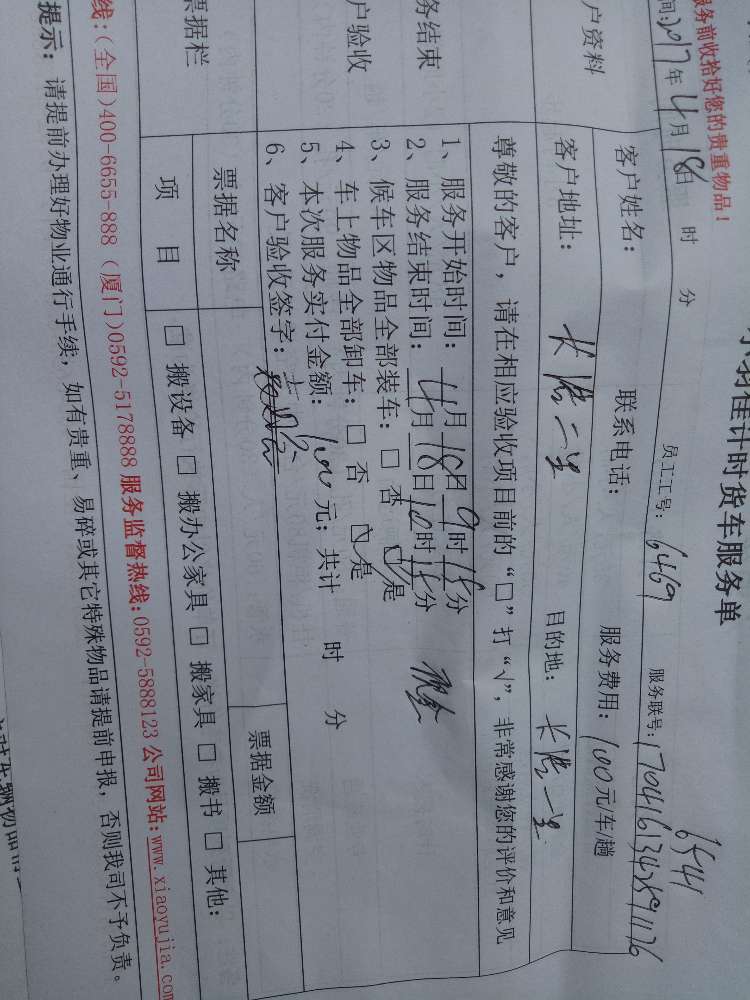 小羽佳计时货车服务单
服务前收拾好您的贵重物品!
间:2017年4月18日 时 分 员工工号: 6469 服务联号: 17041613428911176
6541
户资料 客户姓名: 联系电话: 服务费用: 100元/车/趟
客户地址: 长浩二里 目的地: 长浩一里
务结束
户验收
尊敬的客户，请在相应验收项目前的“□”打“√”，非常感谢您的评价和意见
1、服务开始时间: 4月18日9时15分
2、服务结束时间: 4月18日10时15分 现金
3、候车区物品全部装车: □ 否 ☑是
4、车上物品全部卸车: □ 否 ☑是
5、本次服务实付金额: 100元; 共计 时 分
6、客户验收签字:
票据栏 票据名称 票据金额
项 目 □ 搬设备 □ 搬办公家具 □ 搬家具 □ 搬书 □ 其他:
线:(全国)400-6655-888 (厦门)0592-5178888 服务监督热线:0592-5888123 公司网站:www.xiaoyujia.com
提示: 请提前办理好物业通行手续，如有贵重、易碎或其它特殊物品请提前申报，否则我司不予负责。